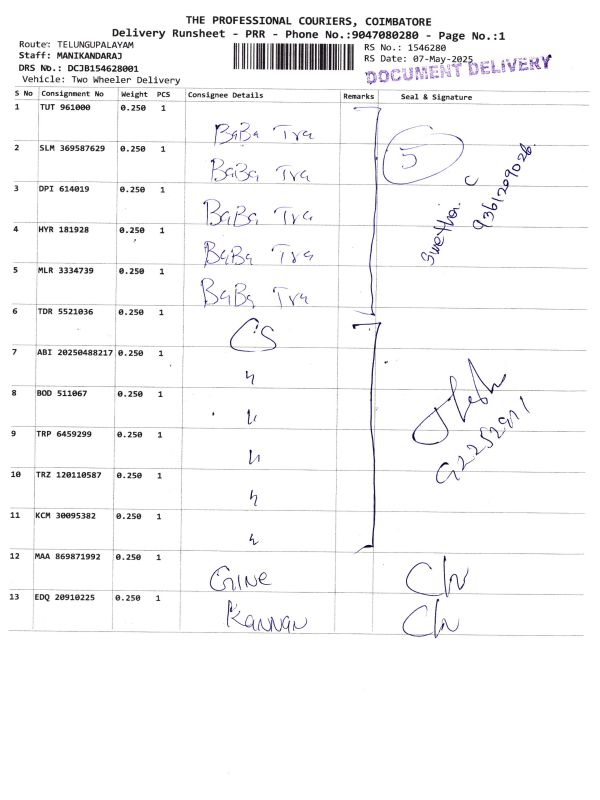 THE PROFESSIONAL COURIERS, COIMBATORE
Delivery Runsheet - PRR - Phone No.:9047080280 - Page No.:1
Route: TELUNGUPALAYAM
Staff: MANIKANDARAJ
DRS No.: DCJB154628001
Vehicle: Two Wheeler Delivery
RS No.: 1546280
RS Date: 07-May-2025
DOCUMENT DELIVERY
S No Consignment No Weight PCS Consignee Details Remarks Seal & Signature
1 TUT 961000 0.250 1 BaBa Tra
2 SLM 369587629 0.250 1 BaBa Tra
3 DPI 614019 0.250 1 BaBa Tra
4 HYR 181928 0.250 1 BaBa Tra
5 MLR 3334739 0.250 1 BaBa Tra
5
Swetha. C
9361209026
6 TDR 5521036 0.250 1 CS
7 ABI 20250488217 0.250 1 "
8 BOD 511067 0.250 1 "
9 TRP 6459299 0.250 1 "
10 TRZ 120110587 0.250 1 "
11 KCM 30095382 0.250 1 "
12 MAA 869871992 0.250 1 GINE
13 EDQ 20910225 0.250 1 Kannan